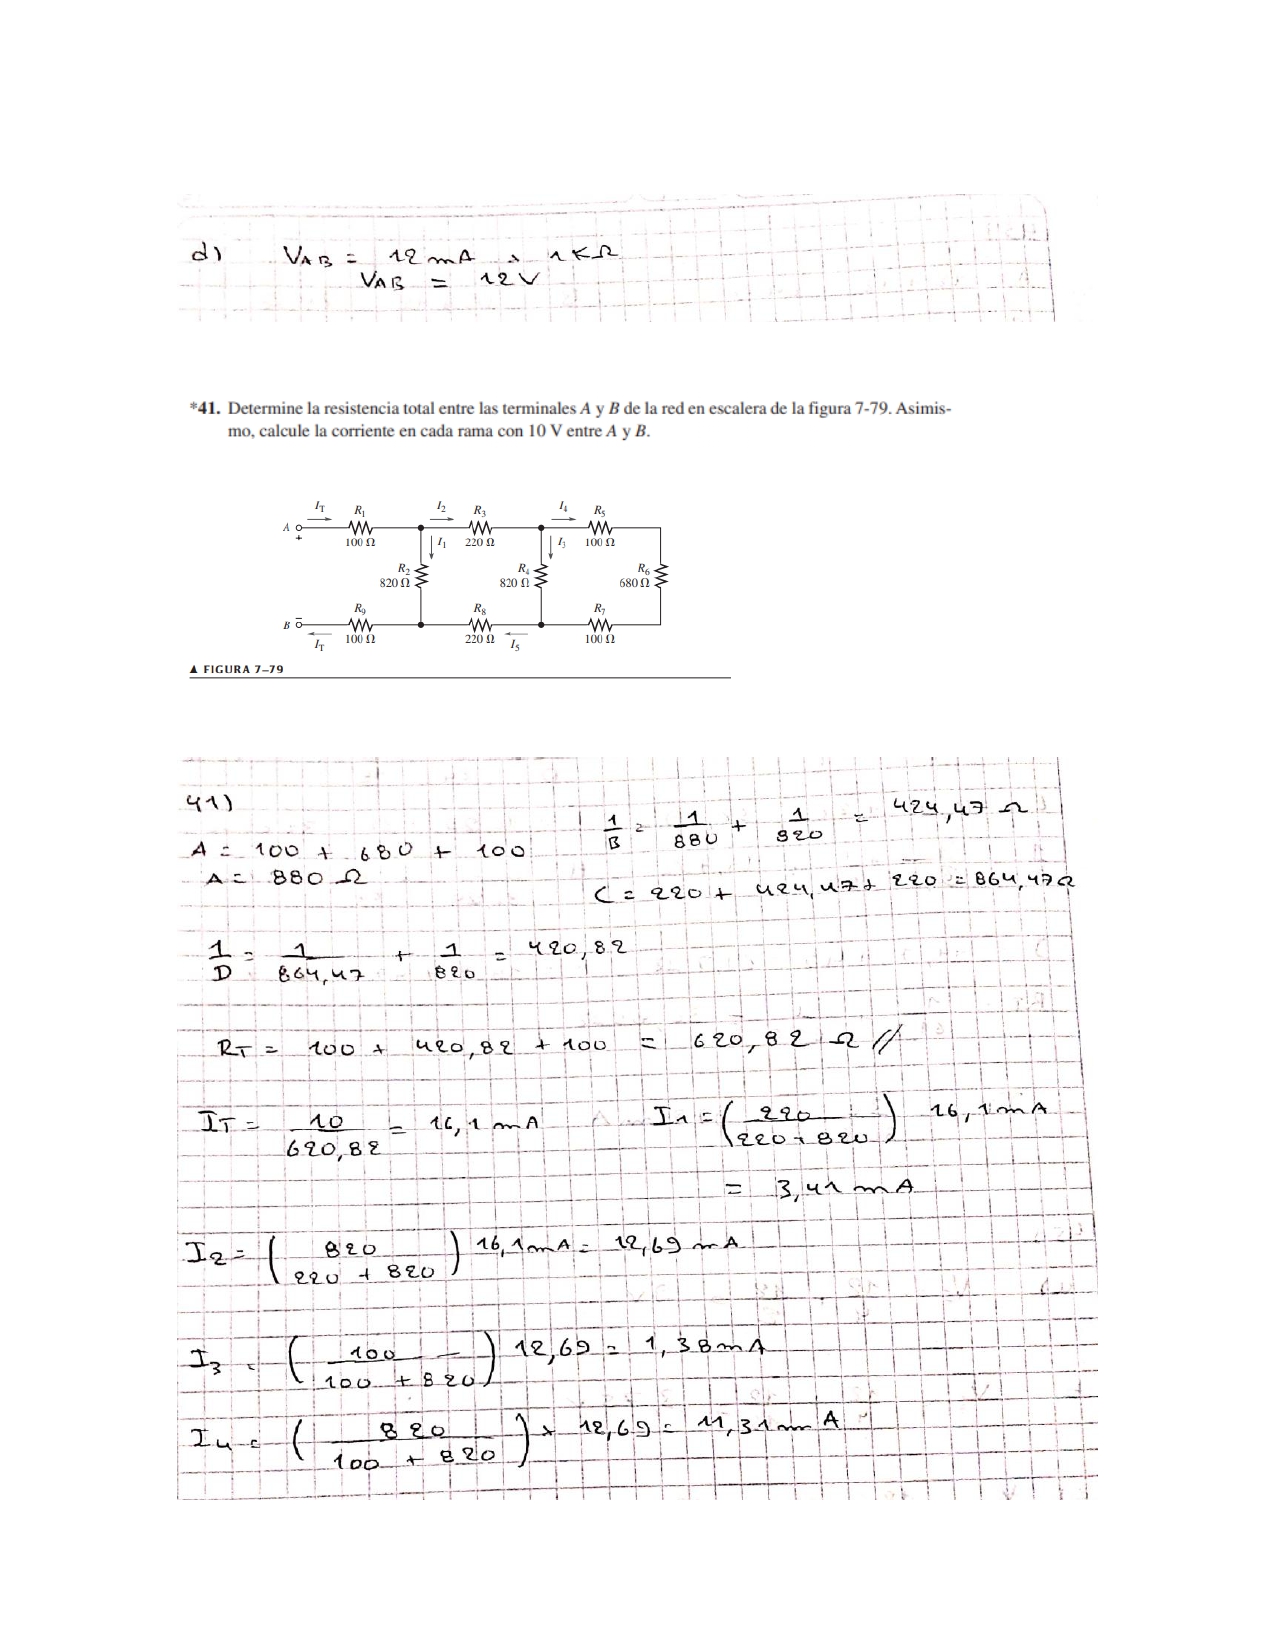 d) VAB = 12 mA × 1 KΩ
VAB = 12V
*41. Determine la resistencia total entre las terminales A y B de la red en escalera de la figura 7-79. Asimis-
mo, calcule la corriente en cada rama con 10 V entre A y B.
IT R1 I2 R3 I4 R5
A
+ 100 Ω I1 220 Ω I3 100 Ω
R2 R4 R6
820 Ω 820 Ω 680 Ω
R9 R8 R7
B −
IT 100 Ω 220 Ω I5 100 Ω
▲ FIGURA 7–79
41)
1/B = 1/880 + 1/820 = 424,47 Ω
A = 100 + 680 + 100
A = 880 Ω
C = 220 + 424,47 + 220 = 864,47Ω
1/D = 1/864,47 + 1/820 = 420,82
RT = 100 + 420,82 + 100 = 620,82 Ω //
IT = 10/620,82 = 16,1 mA
I1 = (220/220+820) 16,1mA
= 3,41 mA
I2 = (820/220 + 820) 16,1mA = 12,69 mA
I3 = (100/100 + 820) 12,69 = 1,38mA
I4 = (820/100 + 820) × 12,69 = 11,31mA